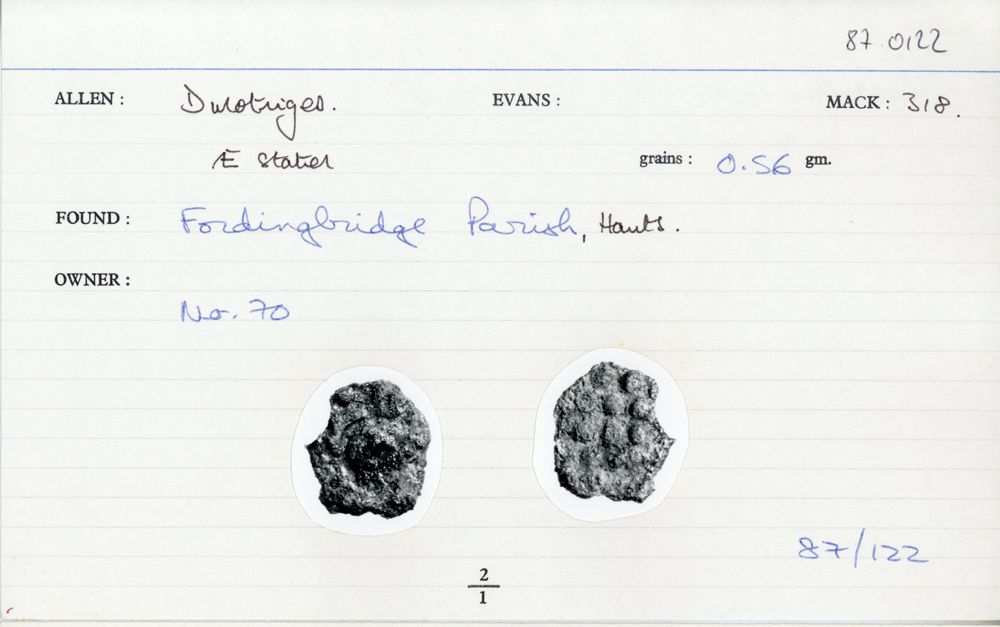 87.0122
ALLEN : Durotriges. EVANS : MACK : 318.
Æ Stater grains : 0.56 gm.
FOUND : Fordingbridge Parish, Hants.
OWNER :
No. 70
87/122
2
1